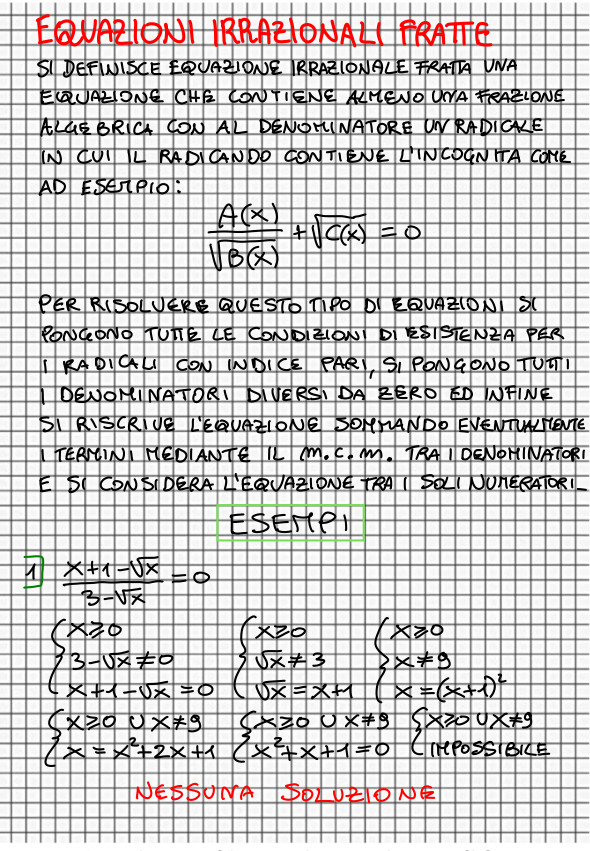 EQUAZIONI IRRAZIONALI FRATTE
SI DEFINISCE EQUAZIONE IRRAZIONALE FRATTA UNA
EQUAZIONE CHE CONTIENE ALMENO UNA FRAZIONE
ALGEBRICA CON AL DENOMINATORE UN RADICALE
IN CUI IL RADICANDO CONTIENE L'INCOGNITA COME
AD ESEMPIO:
A(x)/√B(x) + √C(x) = 0
PER RISOLVERE QUESTO TIPO DI EQUAZIONI SI
PONGONO TUTTE LE CONDIZIONI DI ESISTENZA PER
I RADICALI CON INDICE PARI, SI PONGONO TUTTI
I DENOMINATORI DIVERSI DA ZERO ED INFINE
SI RISCRIVE L'EQUAZIONE SOMMANDO EVENTUALMENTE
I TERMINI MEDIANTE IL m.c.m. TRA I DENOMINATORI
E SI CONSIDERA L'EQUAZIONE TRA I SOLI NUMERATORI_
ESEMPI
1] (x+1-√x)/(3-√x) = 0
{x≥0 {x≥0 {x≥0
3-√x≠0 √x≠3 x≠9
x+1-√x=0 √x=x+1 x=(x+1)²
{x≥0 U x≠9 {x≥0 U x≠9 {x≥0 U x≠9
x=x²+2x+1 x²+x+1=0 IMPOSSIBILE
NESSUNA SOLUZIONE